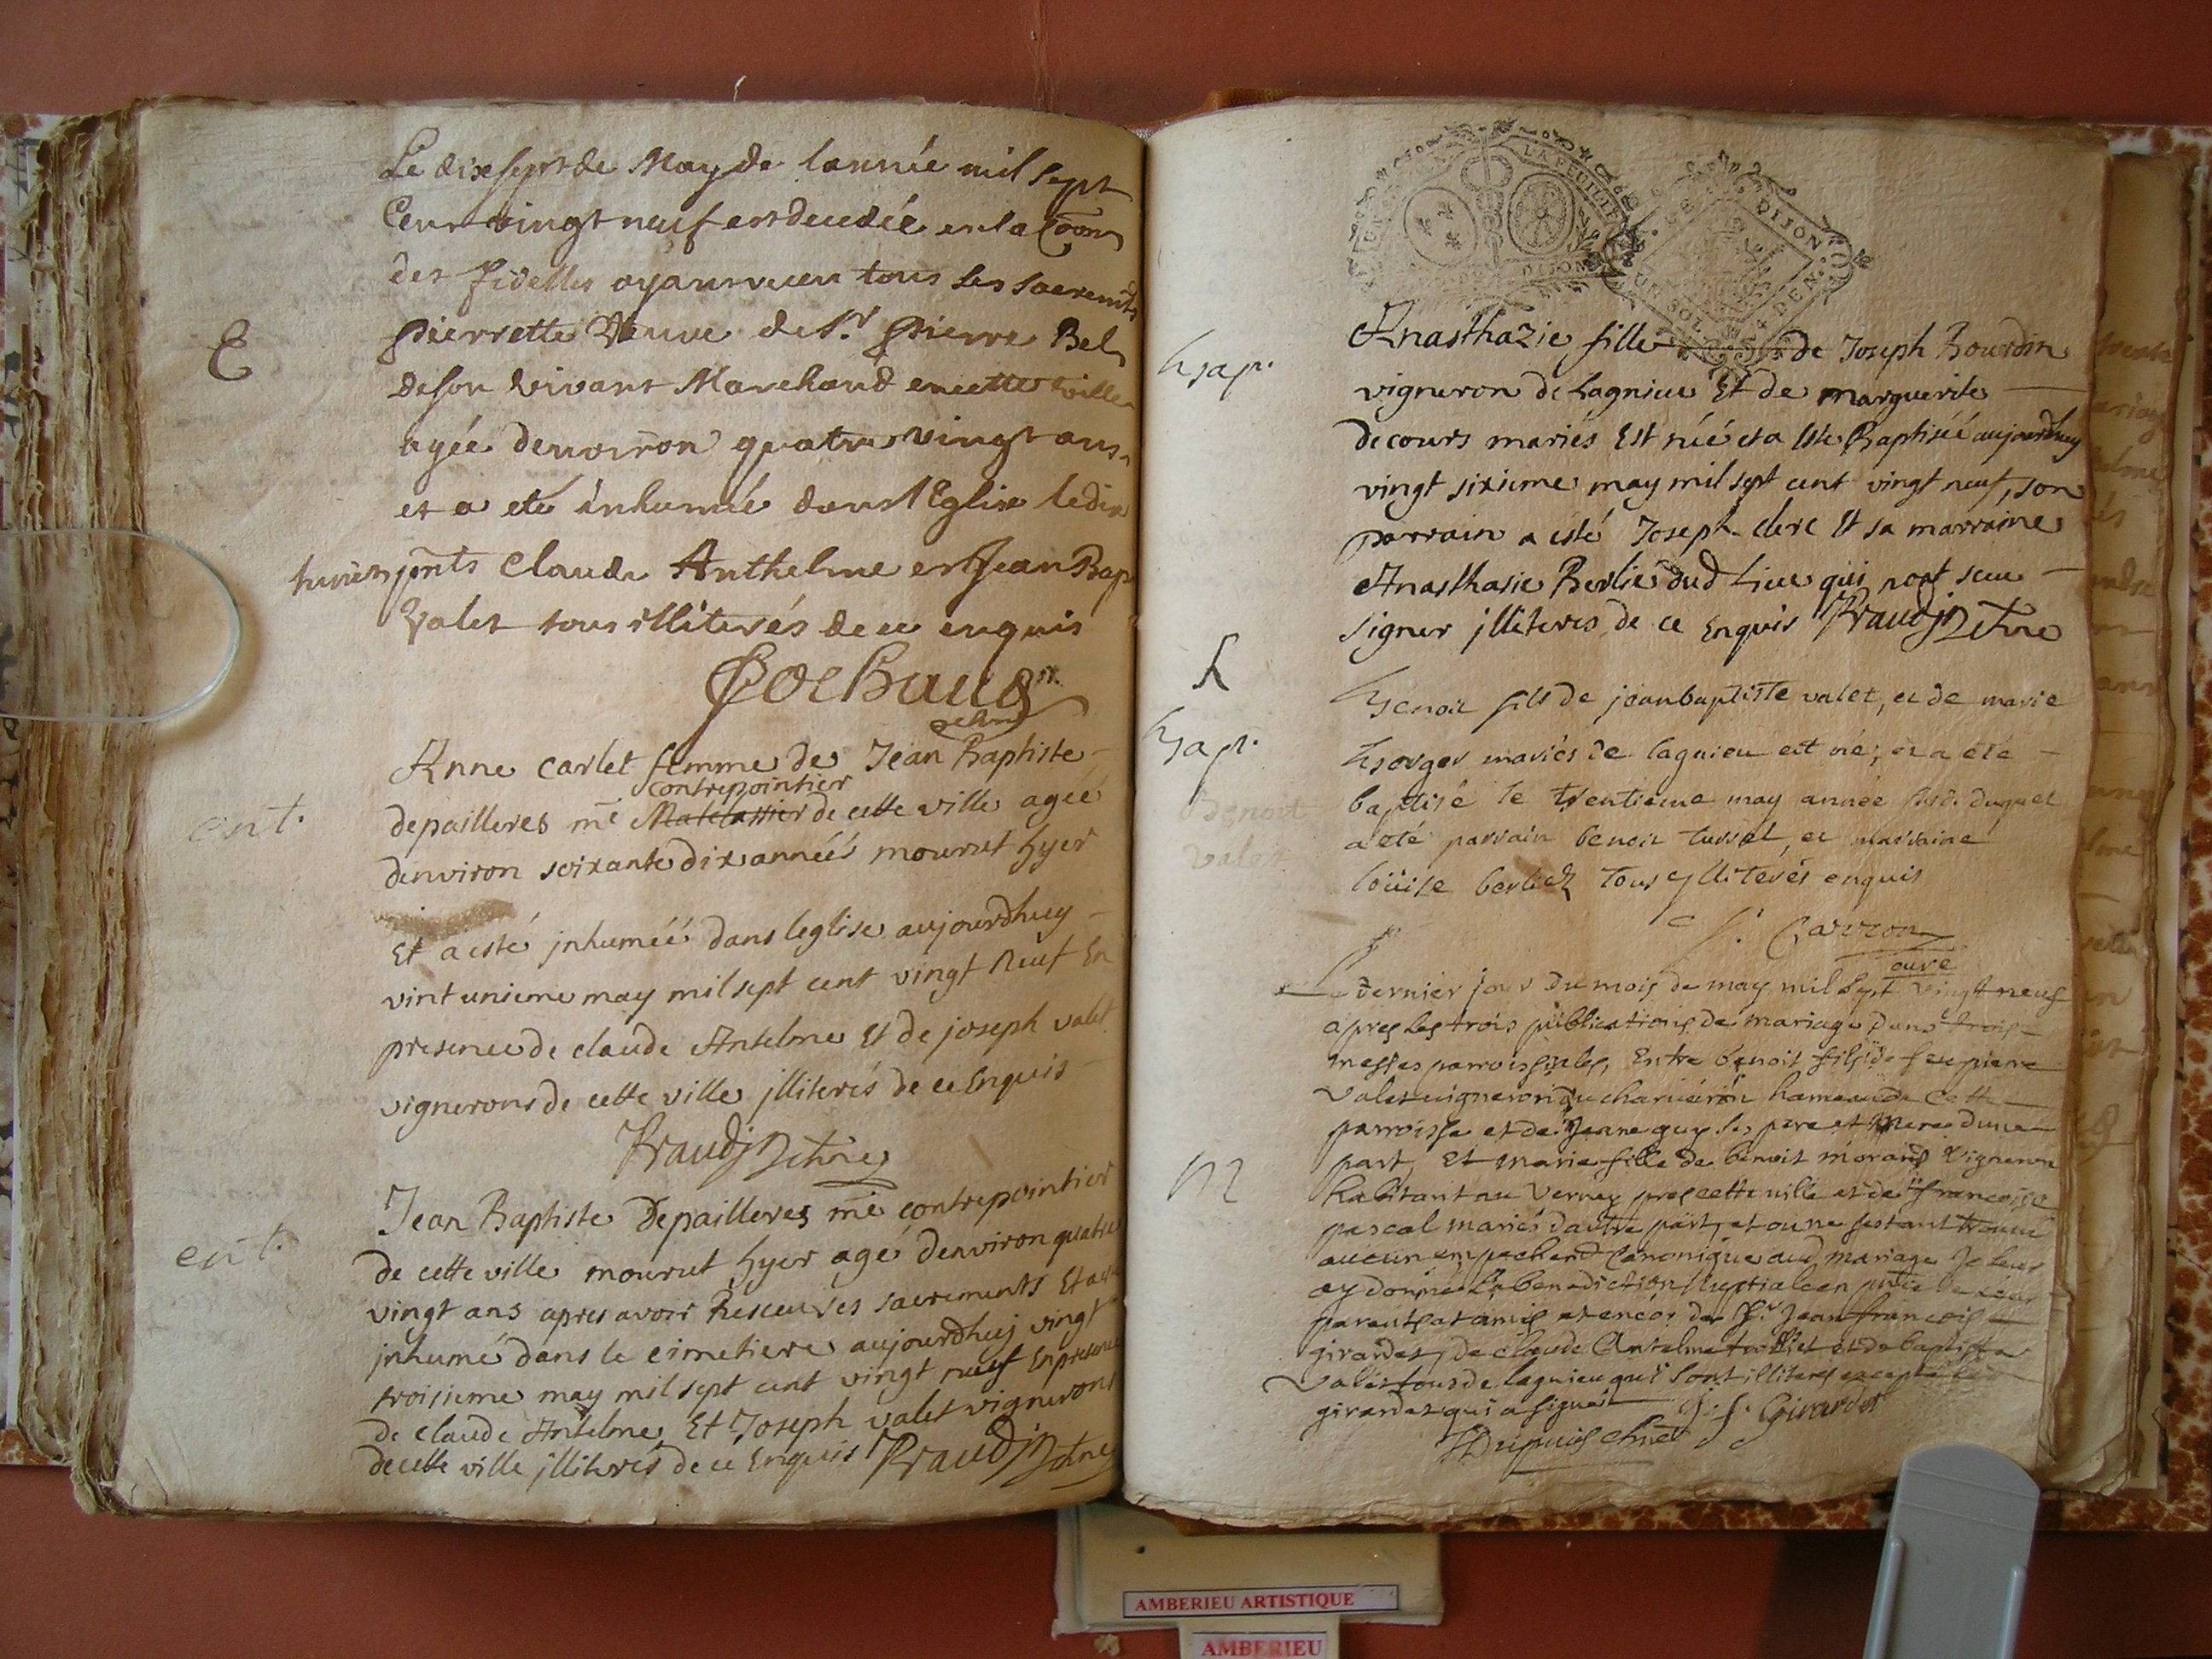 Le dixsept de May de lannée mil sept
Cent vingt neuf est decedée en la Coõn
des fidelles ayant receu tous les sacremts
E
Pierrette Veuve de Sr. Pierre Bel
de son vivant Marchand en cette ville
agée denviron quatre vingt ans
et a eté inhumée dans l'Eglise le dix
huit pnts Claude Anthelme et Jean Bapt
Valet tous illiterés de ce enquis
Anne Carlet femme de Jean Baptiste
contrepointier
ent.
depailleres me Matelassier de cette ville agée
denviron soixante dix années mourut hyer
Et a esté jnhumée dans leglise aujourdhuy
vint unieme may mil sept cent vingt neuf En
presence de claude Antelme Et de joseph valet
vignerons de cette ville jlliterés de ce Enquis
Jean Baptiste Depailleres me contrepointier
ent.
de cette ville mourut hyer agé denviron quatre
vingt ans apres avoir Resceu ses sacrements Et a
jnhumé dans le cimetiere aujourdhuj vingt
troisieme may mil sept cent vingt neuf En presence
de claude Antelme Et Joseph valet vignerons
de cette ville jlliterés de ce Enquis
LA FEUILLE
DIJON
DIJON
UN SOL
DEN.
Anasthazie fille de Joseph Bourdin
Bapt.
vigneron de Lagnieu Et de marguerite
decours mariés Est née et a Esté Baptisée aujourdhuy
vingt sixieme may mil sept cent vingt neuf, son
parrain a esté Joseph clerc Et sa marraine
Anasthasie Berlie dud Lieu qui nont sceu
signer jlliterés de ce Enquis
Benoit fils de jean baptiste valet, et de marie
Bapt.
borger mariés de lagnieu est né, et a eté
Benoit
Valet
baptisé le trentieme may année susd. duquel
a eté parrain benoit turret, et marraine
loüise berliet tous ylliterés enquis
Carron
curé
Le dernier jour du mois de may mil sept vingt neuf
apres les trois publications de mariage dans trois
messes parroissiales, Entre benoit fils de feu pierre
Valet vigneron du charveiron hameau de cette
parroisse et de Jeanne guy ses pere et Mere dune
M
part, Et marie fille de benoit morand Vigneron
habitant au Verney pres cette ville et de francoise
pascal mariés dautre part, et ou ne sestant trouvé
aucun empechent Canonique aud mariage Je leur
ay donné la benediction Nuptiale en pnce de leurs
parents et amis et encor de Sr. Jean francois
girardet, de claude Antelme et de baptiste
Valet tous de lagnieu qui sont illiterés excepté led
girardet qui a signé
J. f. Girardet
AMBERIEU ARTISTIQUE
AMBERIEU